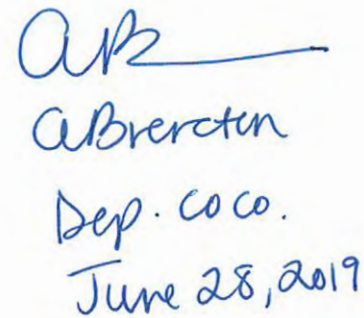 ABrercten
Dep. CO CO.
June 28, 2019